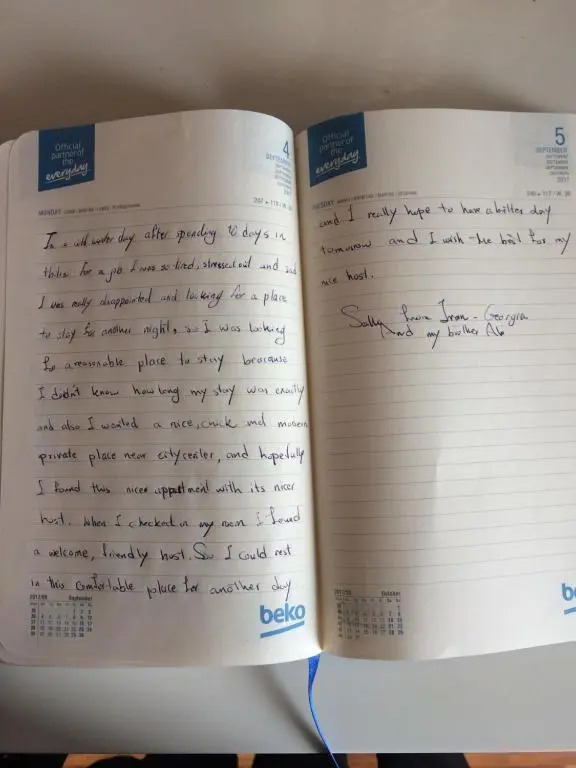 Official
partner of
the
everyday
4
SEPTEMBER
2017
MONDAY
In a cold winter day after spending 10 days in
tbilisi for a job I was so tired, stressed out and sad
I was really disappointed and looking for a place
to stay for another night, so I was looking
for a reasonable place to stay beacause
I didn't know how long my stay was exactly
and also I wanted a nice, and modern
private place near city center, and hopefully
I found this nicer appartment with its nicer
host. when I checked in my room I found
a welcome, friendly host. So I could rest
in this comfortable place for another day
2017/09 September
beko
Official
partner of
the
everyday
5
SEPTEMBER
2017
TUESDAY
and I really hope to have a better day
tomorrow and I wish the best for my
nice host.
Sally from Iran - Georgia
And my brother
October
be